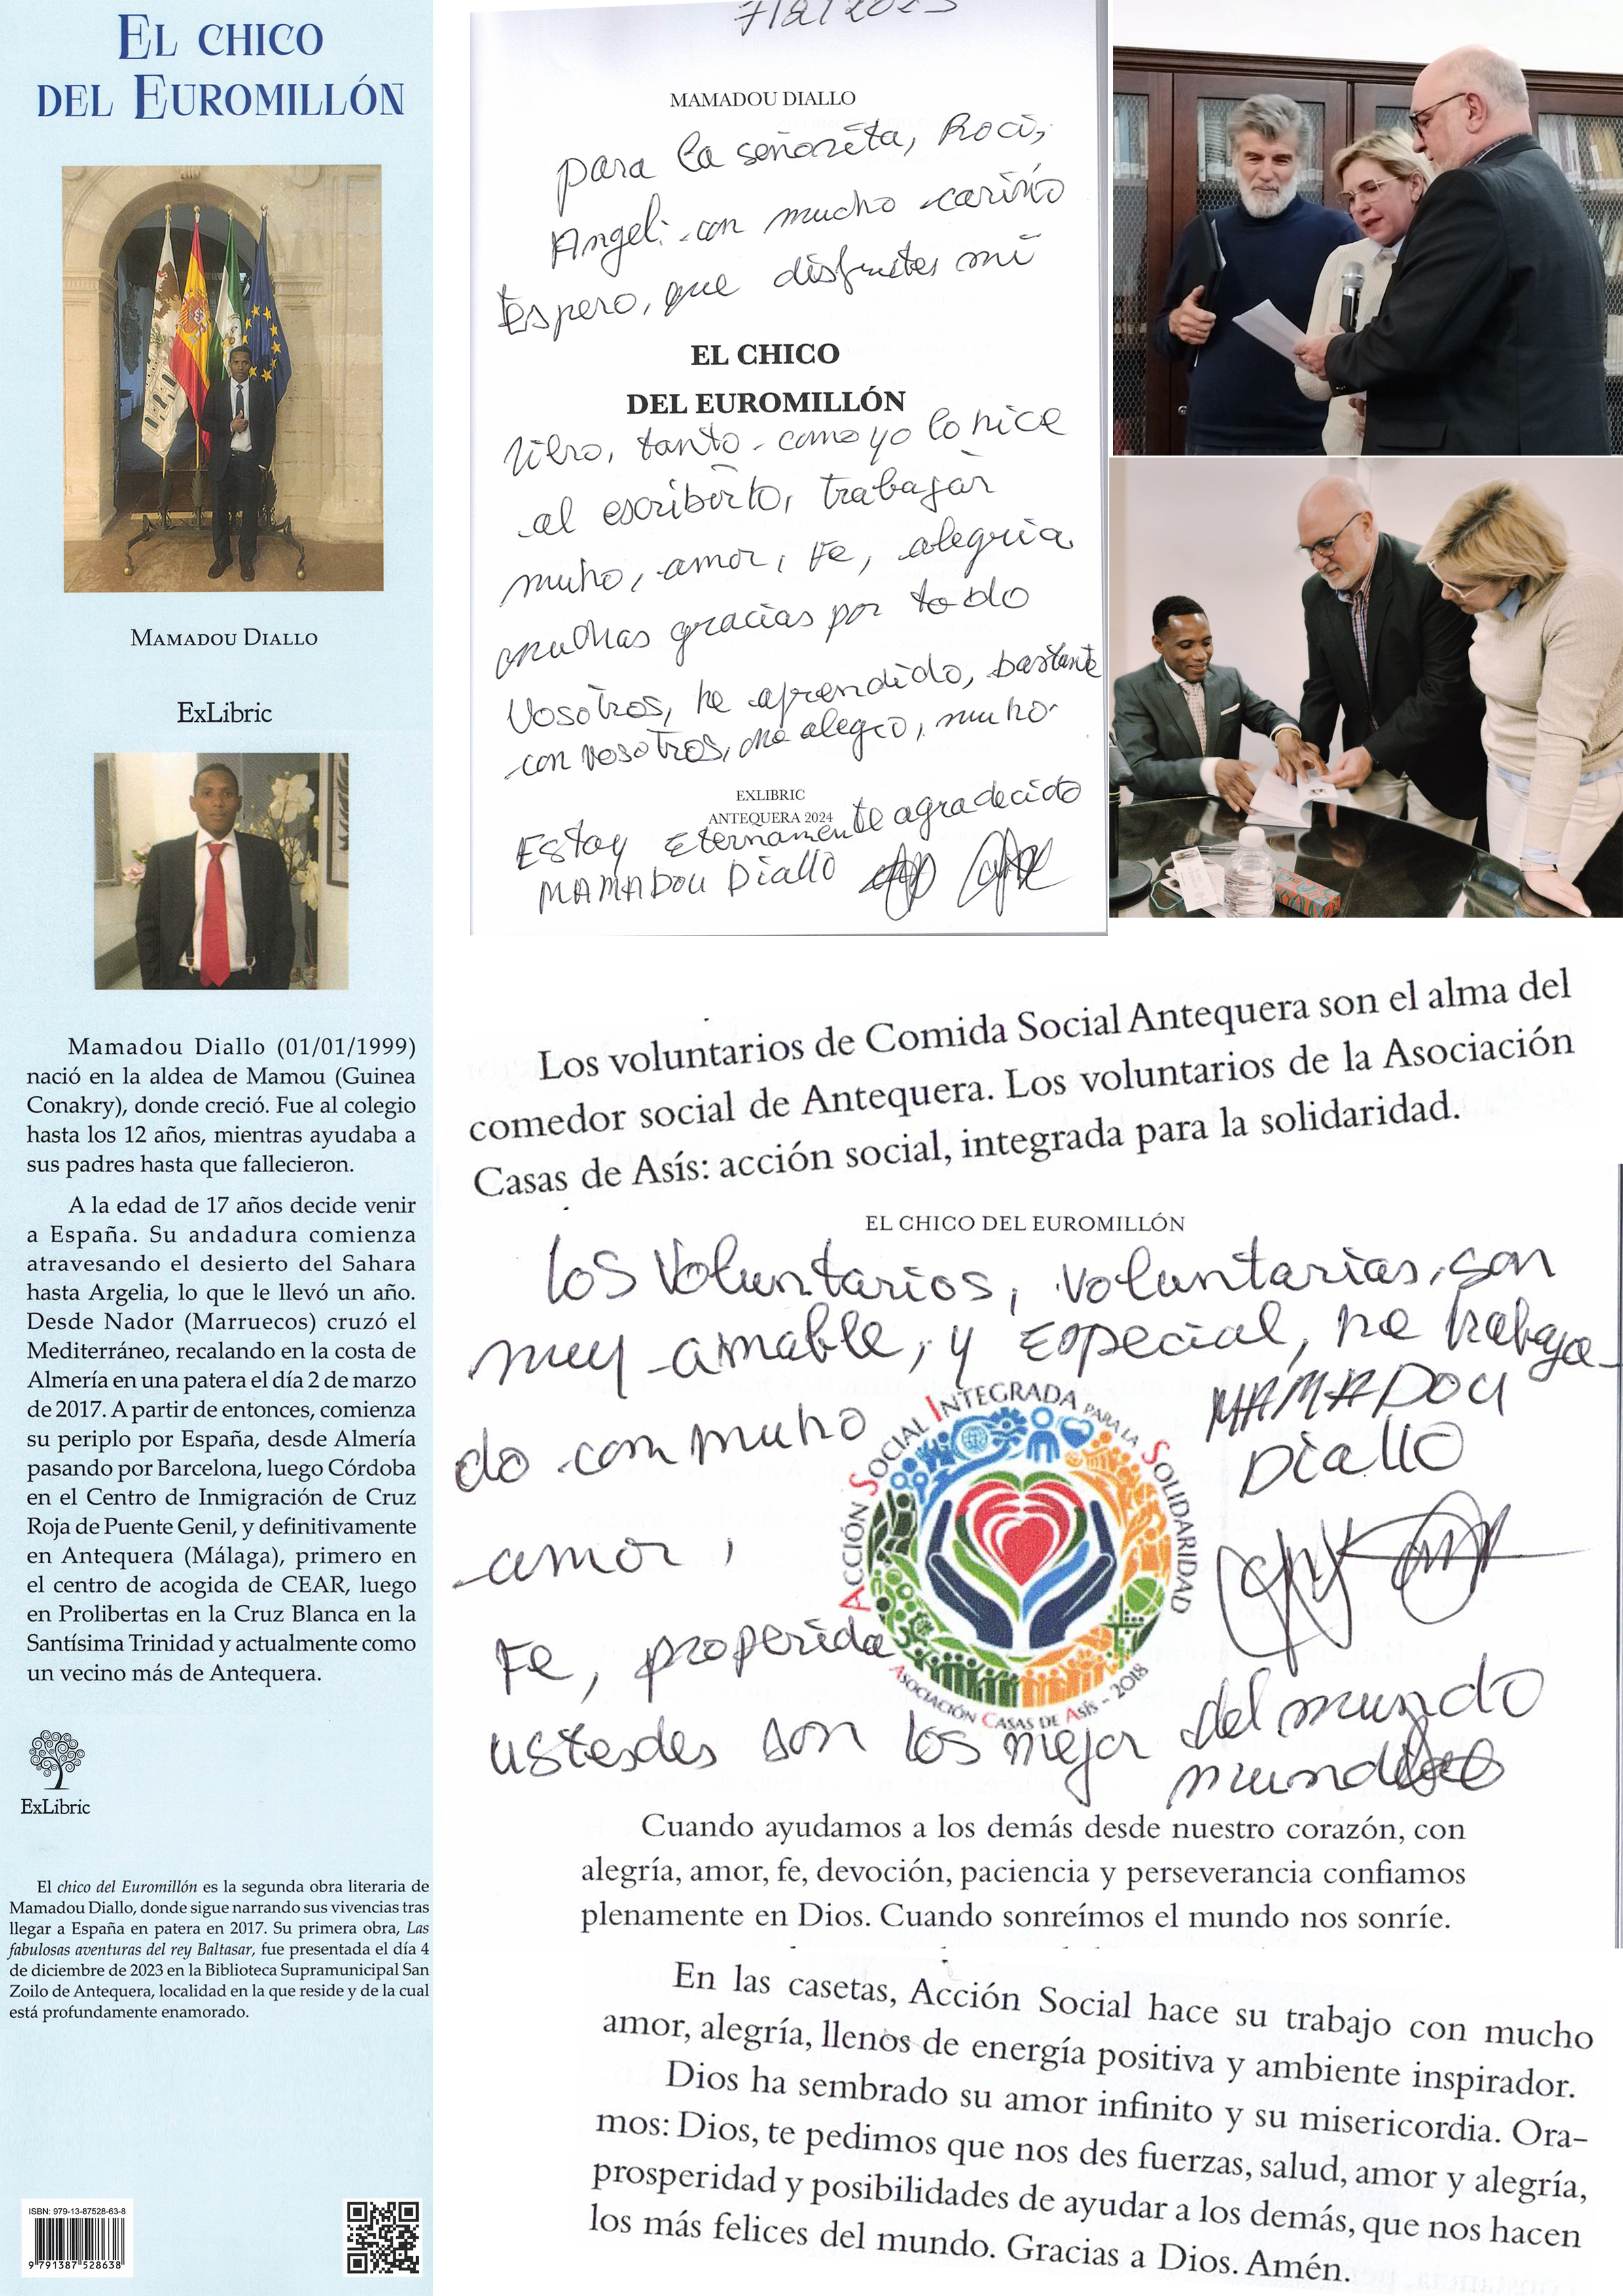 EL CHICO
DEL EUROMILLÓN
MAMADOU DIALLO
ExLibric
Mamadou Diallo (01/01/1999)
nació en la aldea de Mamou (Guinea
Conakry), donde creció. Fue al colegio
hasta los 12 años, mientras ayudaba a
sus padres hasta que fallecieron.
A la edad de 17 años decide venir
a España. Su andadura comienza
atravesando el desierto del Sahara
hasta Argelia, lo que le llevó un año.
Desde Nador (Marruecos) cruzó el
Mediterráneo, recalando en la costa de
Almería en una patera el día 2 de marzo
de 2017. A partir de entonces, comienza
su periplo por España, desde Almería
pasando por Barcelona, luego Córdoba
en el Centro de Inmigración de Cruz
Roja de Puente Genil, y definitivamente
en Antequera (Málaga), primero en
el centro de acogida de CEAR, luego
en Prolibertas en la Cruz Blanca en la
Santísima Trinidad y actualmente como
un vecino más de Antequera.
ExLibric
El chico del Euromillón es la segunda obra literaria de
Mamadou Diallo, donde sigue narrando sus vivencias tras
llegar a España en patera en 2017. Su primera obra, Las
fabulosas aventuras del rey Baltasar, fue presentada el día 4
de diciembre de 2023 en la Biblioteca Supramunicipal San
Zoilo de Antequera, localidad en la que reside y de la cual
está profundamente enamorado.
ISBN: 979-13-87528-63-8
9 791387 528638
MAMADOU DIALLO
para la señorita, Roci,
Angel: con mucho cariño
Espero, que disfrutes mi
EL CHICO
DEL EUROMILLÓN
libro, tanto como yo lo hice
al escribirlo, trabajar
muho, amor, Fe, alegria
muchas gracias por todo
Vosotros, he aprendido, bastante
con vosotros, me alegro, muho
EXLIBRIC
ANTEQUERA 2024
Estoy Eternamente agradecido
MAMADOU Diallo
Los voluntarios de Comida Social Antequera son el alma del
comedor social de Antequera. Los voluntarios de la Asociación
Casas de Asís: acción social, integrada para la solidaridad.
EL CHICO DEL EUROMILLÓN
Los Voluntarios, voluntarias, son
muy amable, y Especial, he trabaja
do con muho
amor,
Fe, properida
ustesdes son los mejor del mundo
MAMADOU
Diallo
ACCIÓN SOCIAL INTEGRADA PARA LA SOLIDARIDAD
ASOCIACIÓN CASAS DE ASÍS - 2018
Cuando ayudamos a los demás desde nuestro corazón, con
alegría, amor, fe, devoción, paciencia y perseverancia confiamos
plenamente en Dios. Cuando sonreímos el mundo nos sonríe.
En las casetas, Acción Social hace su trabajo con mucho
amor, alegría, llenos de energía positiva y ambiente inspirador.
Dios ha sembrado su amor infinito y su misericordia. Ora-
mos: Dios, te pedimos que nos des fuerzas, salud, amor y alegría,
prosperidad y posibilidades de ayudar a los demás, que nos hacen
los más felices del mundo. Gracias a Dios. Amén.